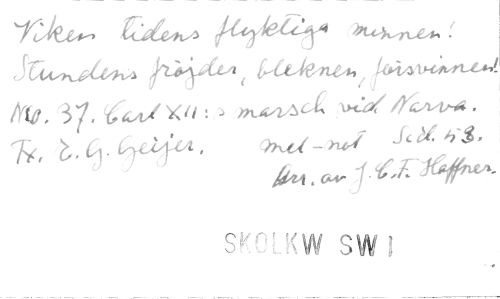 Viken tidens flyktiga minnen!
Stundens fröjder, bleknen, försvinnen!
No. 37. Carl XII:s marsch vid Narva.
Tx. E. G. Geijer. mel-not Sid. 53.
Arr. av J. C. F. Haffner.
SKOLKW SW 1